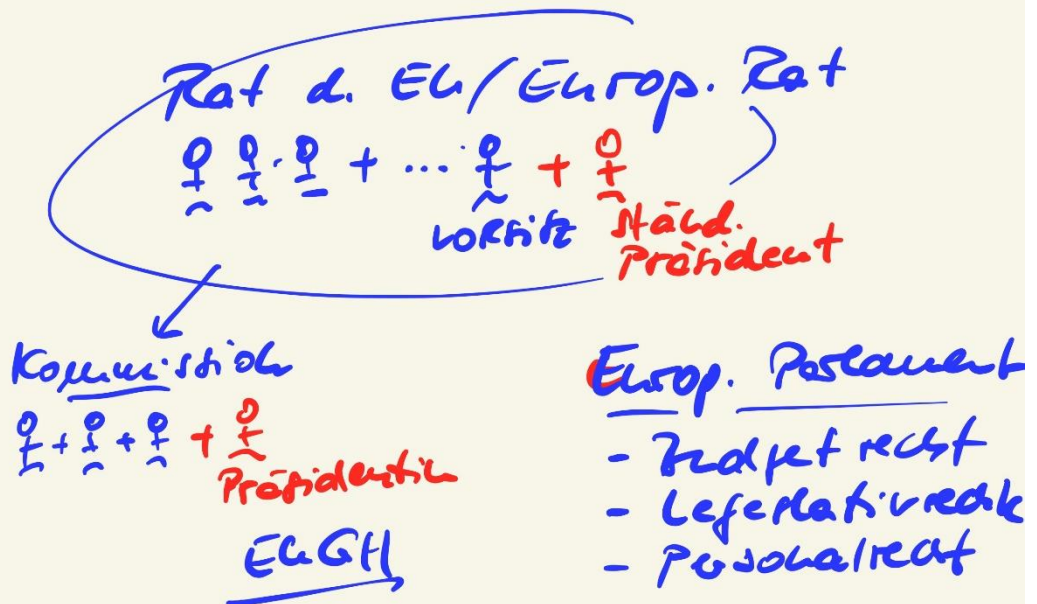 Rat d. EU/Europ. Rat
+ ... +
Vorsitz
Ständ.
Präsident
Kommission
+ + +
Präsidentin
EUGH
Europ. Parlament
- Budgetrecht
- Legislativrecht
- Personalrecht